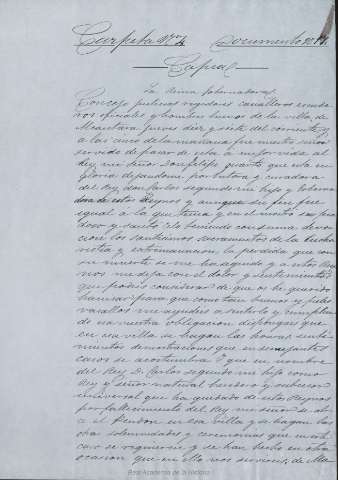 Carpeta Nº 4 Documento nº
Copia
La Reina Gobernadora
Concejo justicia regidores cavalleros escude
ros oficiales y hombres buenos de la villa de
Alcantara jueves diez y siete del corriente y
a las cinco de la mañana fue nuestro señor
servido de pasar de esta a mejor vida al
Rey mi Señor Don Felipe quarto que esta en
Gloria dejandome por tutora y curadora
del Rey don Carlos segundo mi hijo y Gober
dora de estos Reynos y aunque su fin fue
igual a la que tenia y en el mostro
y santo celo haviendo con suma devo
cion los santisimos sacramentos de la Eucha
ristia y extremauncion la perdida que con
su muerte se me ha seguido y a estos Rey
nos me deja con el dolor y sentimiento
que podeis considerar de que os he querido
havisar para que como tan buenos y fieles
vasallos me ayudeis a sentirlo y cumplien
do na vuestra obligacion dispongais que
en esa villa se hagan las honras
mientos demostraciones que en semejantes
casos se acostumbra y que en nombre
del Rey D. Carlos segundo mi hijo como
Rey y señor natural
universal que ha quedado de estos Reynos
por fallecimiento del Rey mi señor se al
a el Pendon en esa Villa y se hagan las
otra solemnidades y ceremonias que en este
caso se requieren y se han hecho en otra
ocasion que en ello nos servireis, de Ma
Real Academia de la Historia